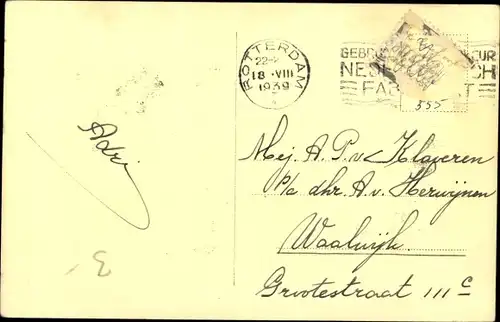 ROTTERDAM
22-
18 .VIII
1939
GEBR UR
NED CH
FA T
555
Adri
Mej. A. P. v. Klaveren
p/a dhr. A. v. Herwijnen
Waalwijk.
Grootestraat 111c
3,-